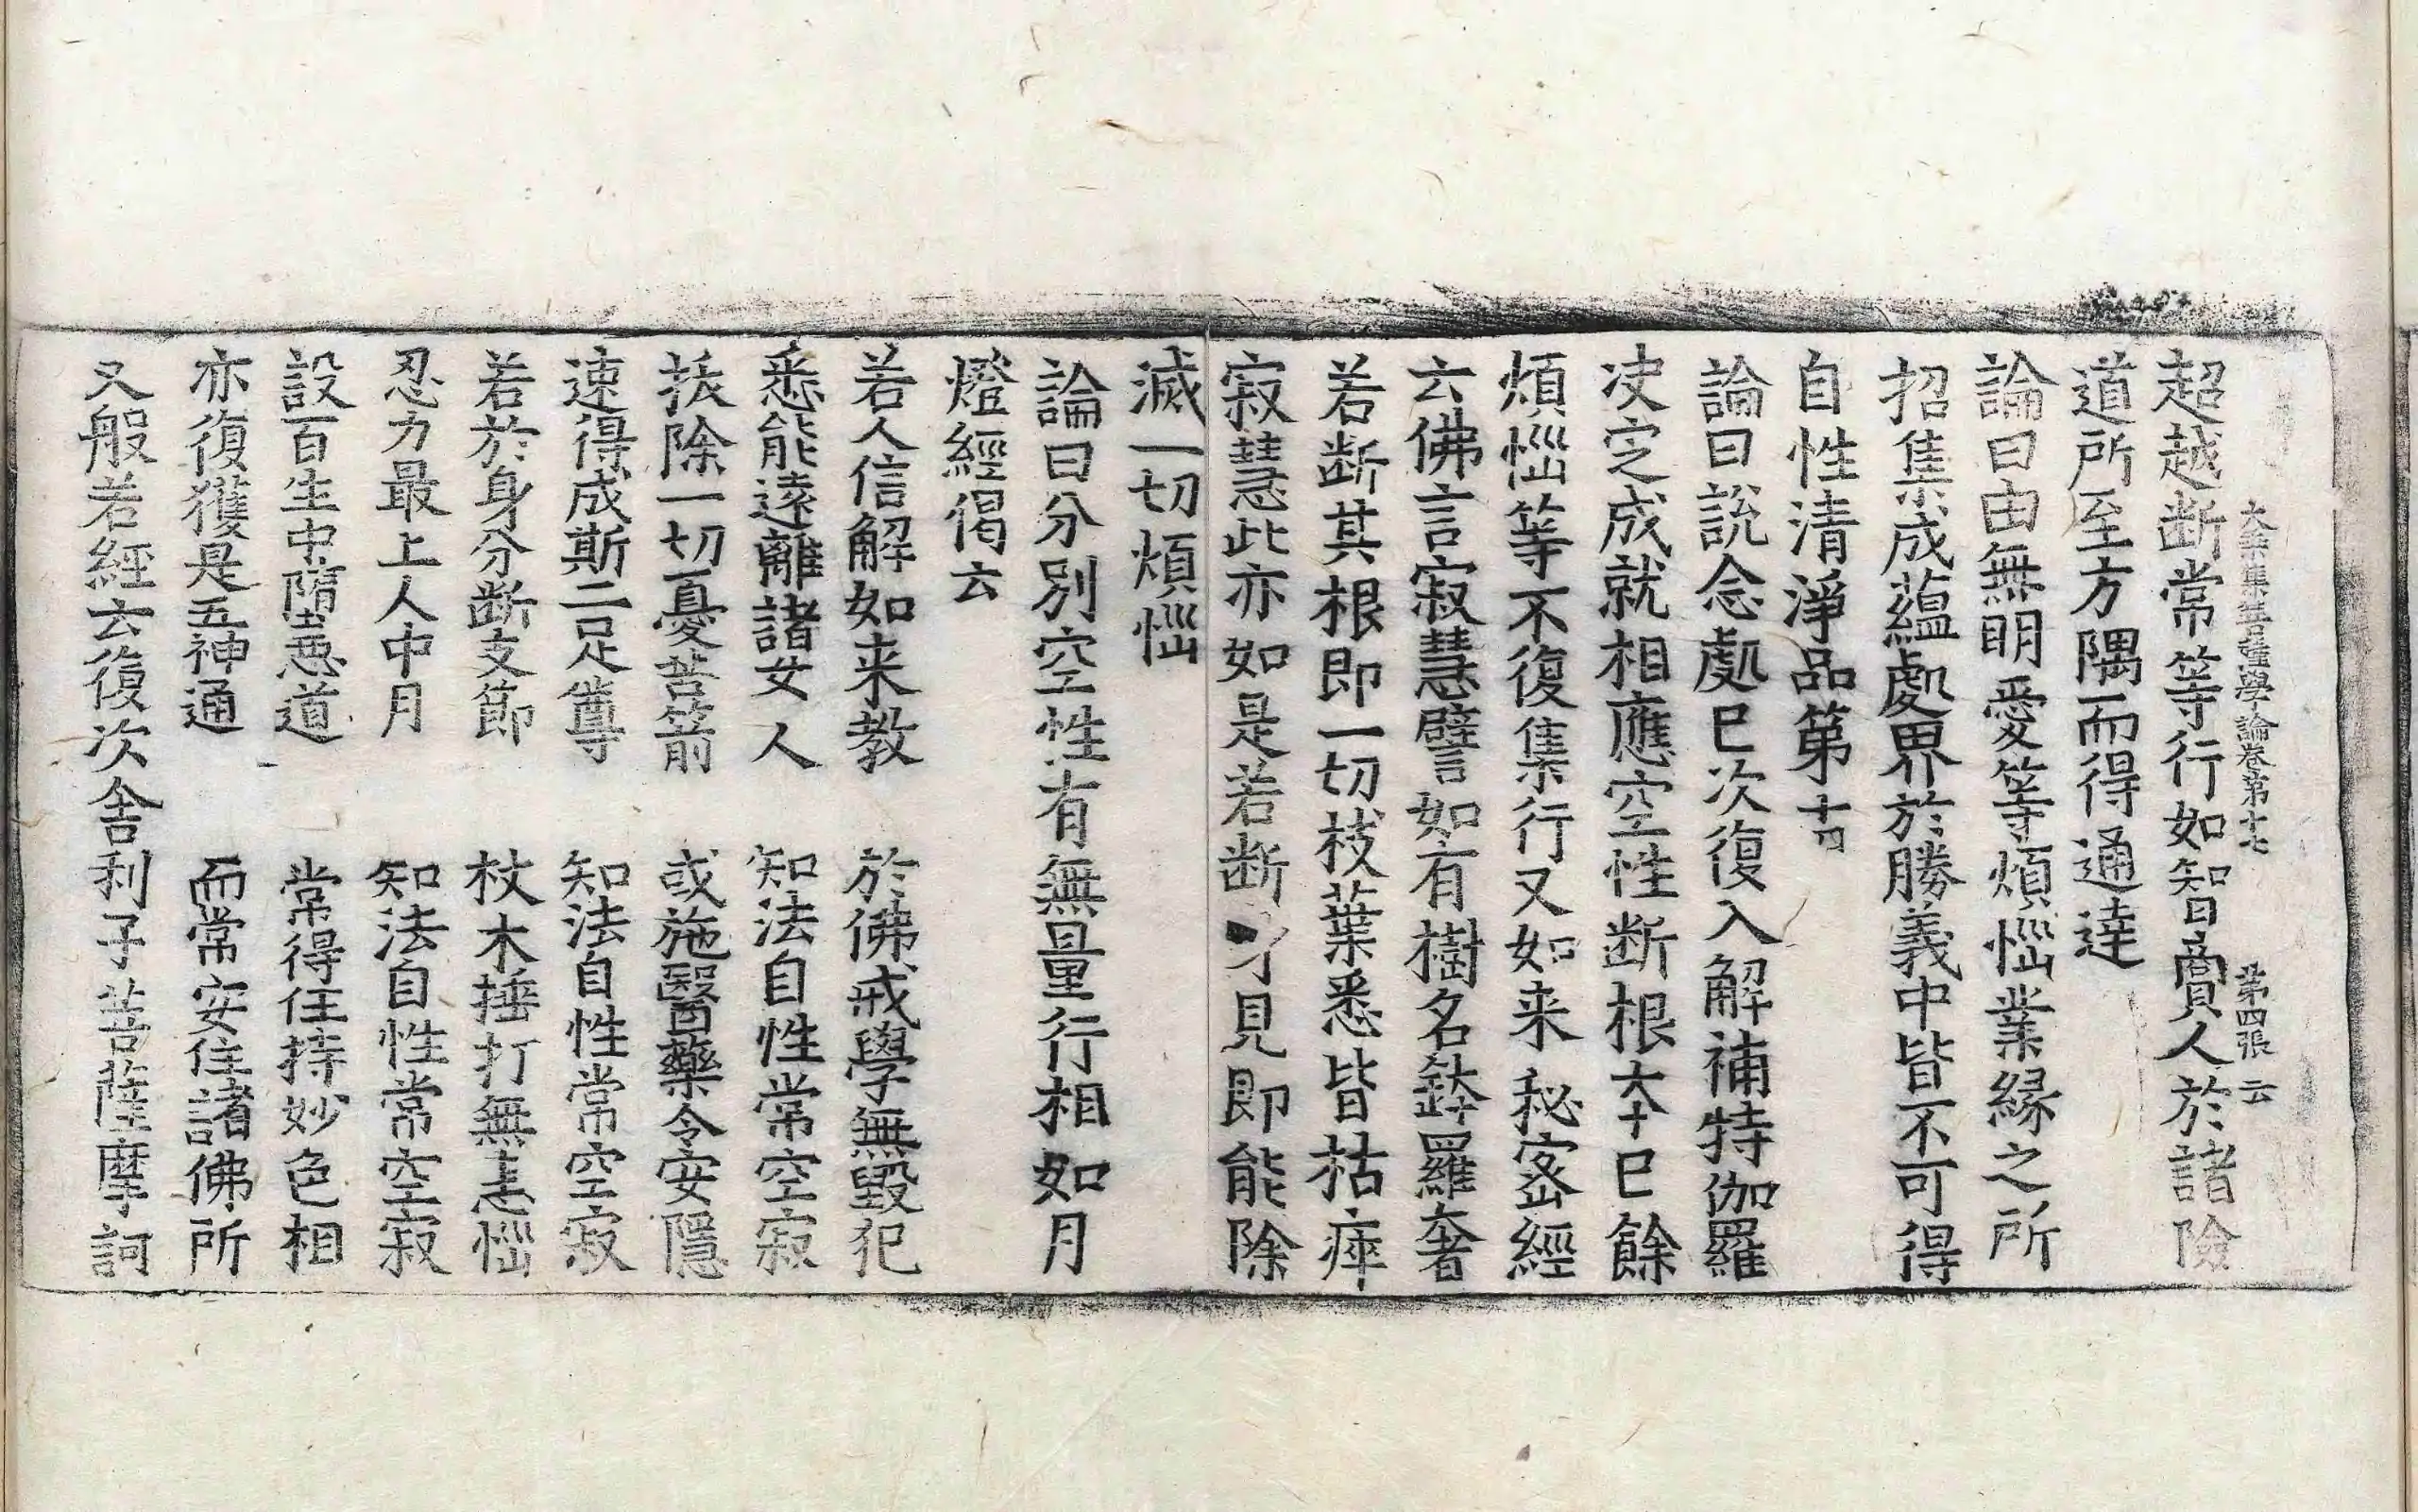 大乘集菩薩學論卷第十七　第四張　云
超越断常等行如智啇人於諸險
道所至方隅而得通達
論曰由無明愛等煩惱業緣之所
招集成蘊處界於勝義中皆不可得
自性清淨品第十四
論曰說念處巳次復入解補特伽羅
决定成就相應空性断根本巳餘
煩惱等不復集行又如来秘密經
云佛言寂慧譬如有樹名鉢羅奢
若断其根即一切枝葉悉皆枯瘁
寂慧此亦如是若断身見即能除
滅一切煩惱
論曰分別空性有無量行相如月
燈經偈云
若人信解如来教　於佛戒學無毀犯
悉能遠離諸女人　知法自性常空寂
拔除一切憂苦箭　或施醫藥令安隱
速得成斯二足尊　知法自性常空寂
若於身分断支節　杖木捶打無恚惱
忍力最上人中月　知法自性常空寂
設百生中墮惡道　常得住持妙色相
亦復獲是五神通　而常安住諸佛所
又般若經云復次舍利子菩薩摩訶